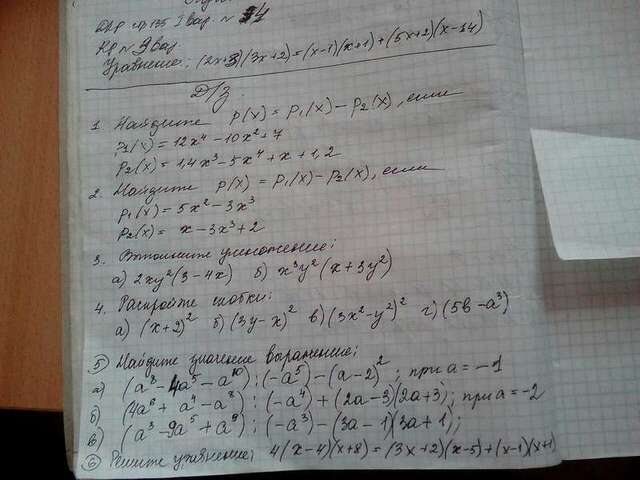 стр 135 I вар №
КР № 9 вар
Уравнение: (2x+3)(3x+2)=(x-1)(x+1)+(5x+2)(x-14)
Д/з.
1. Найдите p(x) = p₁(x) - p₂(x), если
p₁(x) = 12x⁴ - 10x² + 7
p₂(x) = 1,4x³ - 5x⁴ + x + 1,2
2. Найдите p(x) = p₁(x) - p₂(x), если
p₁(x) = 5x² - 3x³
p₂(x) = x - 3x³ + 2
3. Выполните умножение:
а) 2xy²(3-4x) б) x³y²(x+3y²)
4. Раскройте скобки:
а) (x+2)² б) (3y-x)² в) (3x²-y²)² г) (5b-a³)
5) Найдите значение выражение:
а) (a⁸-4a⁵-a¹⁰):(-a⁵)-(a-2)²; при a = -1
б) (4a⁶+a⁴-a⁸):(-a⁴)+(2a-3)(2a+3); при a = -2
в) (a³-9a⁵+a⁹):(-a³)-(3a-1)(3a+1);
6) Решите уравнение: 4(x-4)(x+8)=(3x+2)(x-5)+(x-1)(x+1)